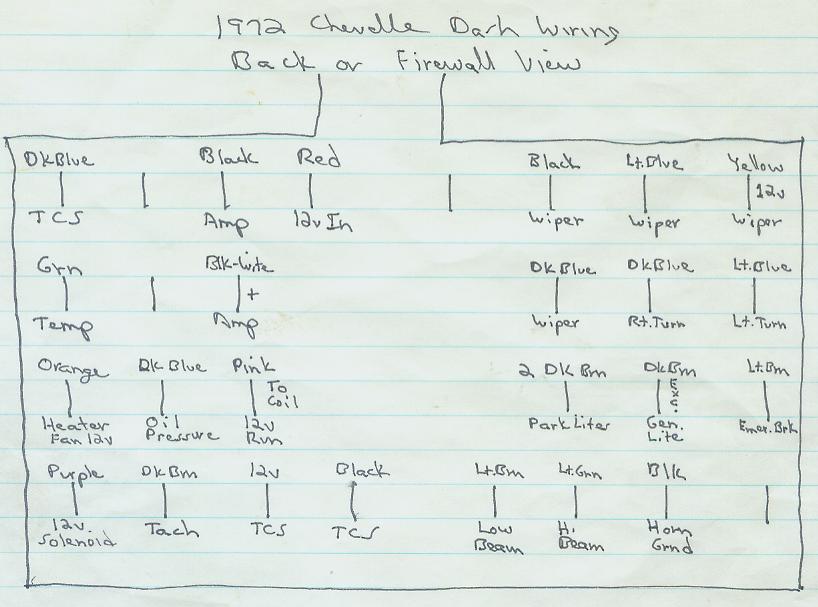 1972 Chevelle Dash Wiring
Back or Firewall View
DkBlue Black Red Black Lt.Blue Yellow
12v
TCS Amp 12v In Wiper Wiper Wiper
Grn Blk-Wite DkBlue DkBlue Lt.Blue
+
Temp Amp Wiper Rt.Turn Lt.Turn
Orange DkBlue Pink 2 DK Brn DkBrn Lt.Brn
To Coil Exc.
Heater Oil 12v Park Lites Gen. Emer.Brk
Fan 12v Pressure Run Lite
Purple DkBrn 12v Black Lt.Brn Lt.Grn Blk
12v. Tach TCS TCS Low Hi Horn
Solenoid Beam Beam Grnd